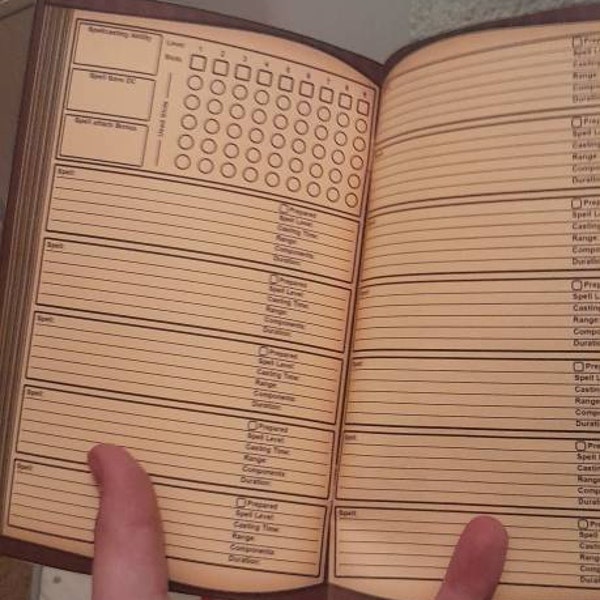 Spellcasting Ability
Level:
1 2 3 4 5 6 7 8 9
Slots
Spell Save DC
Spell attack Bonus
Spell:
Prepared
Spell Level:
Casting Time:
Range:
Components:
Duration:
Spell:
Prepared
Spell Level:
Casting Time:
Range:
Components:
Duration:
Spell:
Prepared
Spell Level:
Casting Time:
Range:
Components:
Duration:
Spell:
Prepared
Spell Level:
Casting Time:
Range:
Components:
Duration:
Spell:
Prepared
Spell Level:
Casting Time:
Range:
Components:
Duration:
Prep
Spell L
Casting
Range
Compo
Duratio
Prep
Spell L
Casting
Range
Compo
Duratio
Prep
Spell L
Casting
Range
Compo
Duratio
Prep
Spell L
Casting
Range
Compo
Duratio
Prep
Spell L
Casting
Range
Compo
Duratio
Spell:
Prep
Spell L
Casting
Range
Comp
Durati
Spell:
Pre
Spell
Castin
Range
Comp
Durat